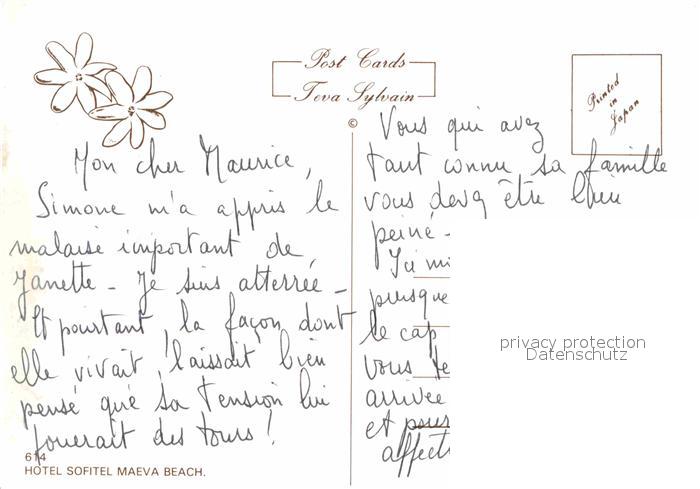 Post Cards
Teva Sylvain
©
Printed
in
Japan
Mon cher Maurice,
Simone m'a appris le
malaise important de
Janette - Je suis atterrée -
Et pourtant, la façon dont
elle vivait, laissait bien
pensé que sa tension lui
jouerait des tours !
614
HOTEL SOFITEL MAEVA BEACH.
Vous qui avez
tant connu sa famille
vous devez être bien
peiné -
Ici
presque
le cap
vous
arrivée
et pour
affect
privacy protection
Datenschutz